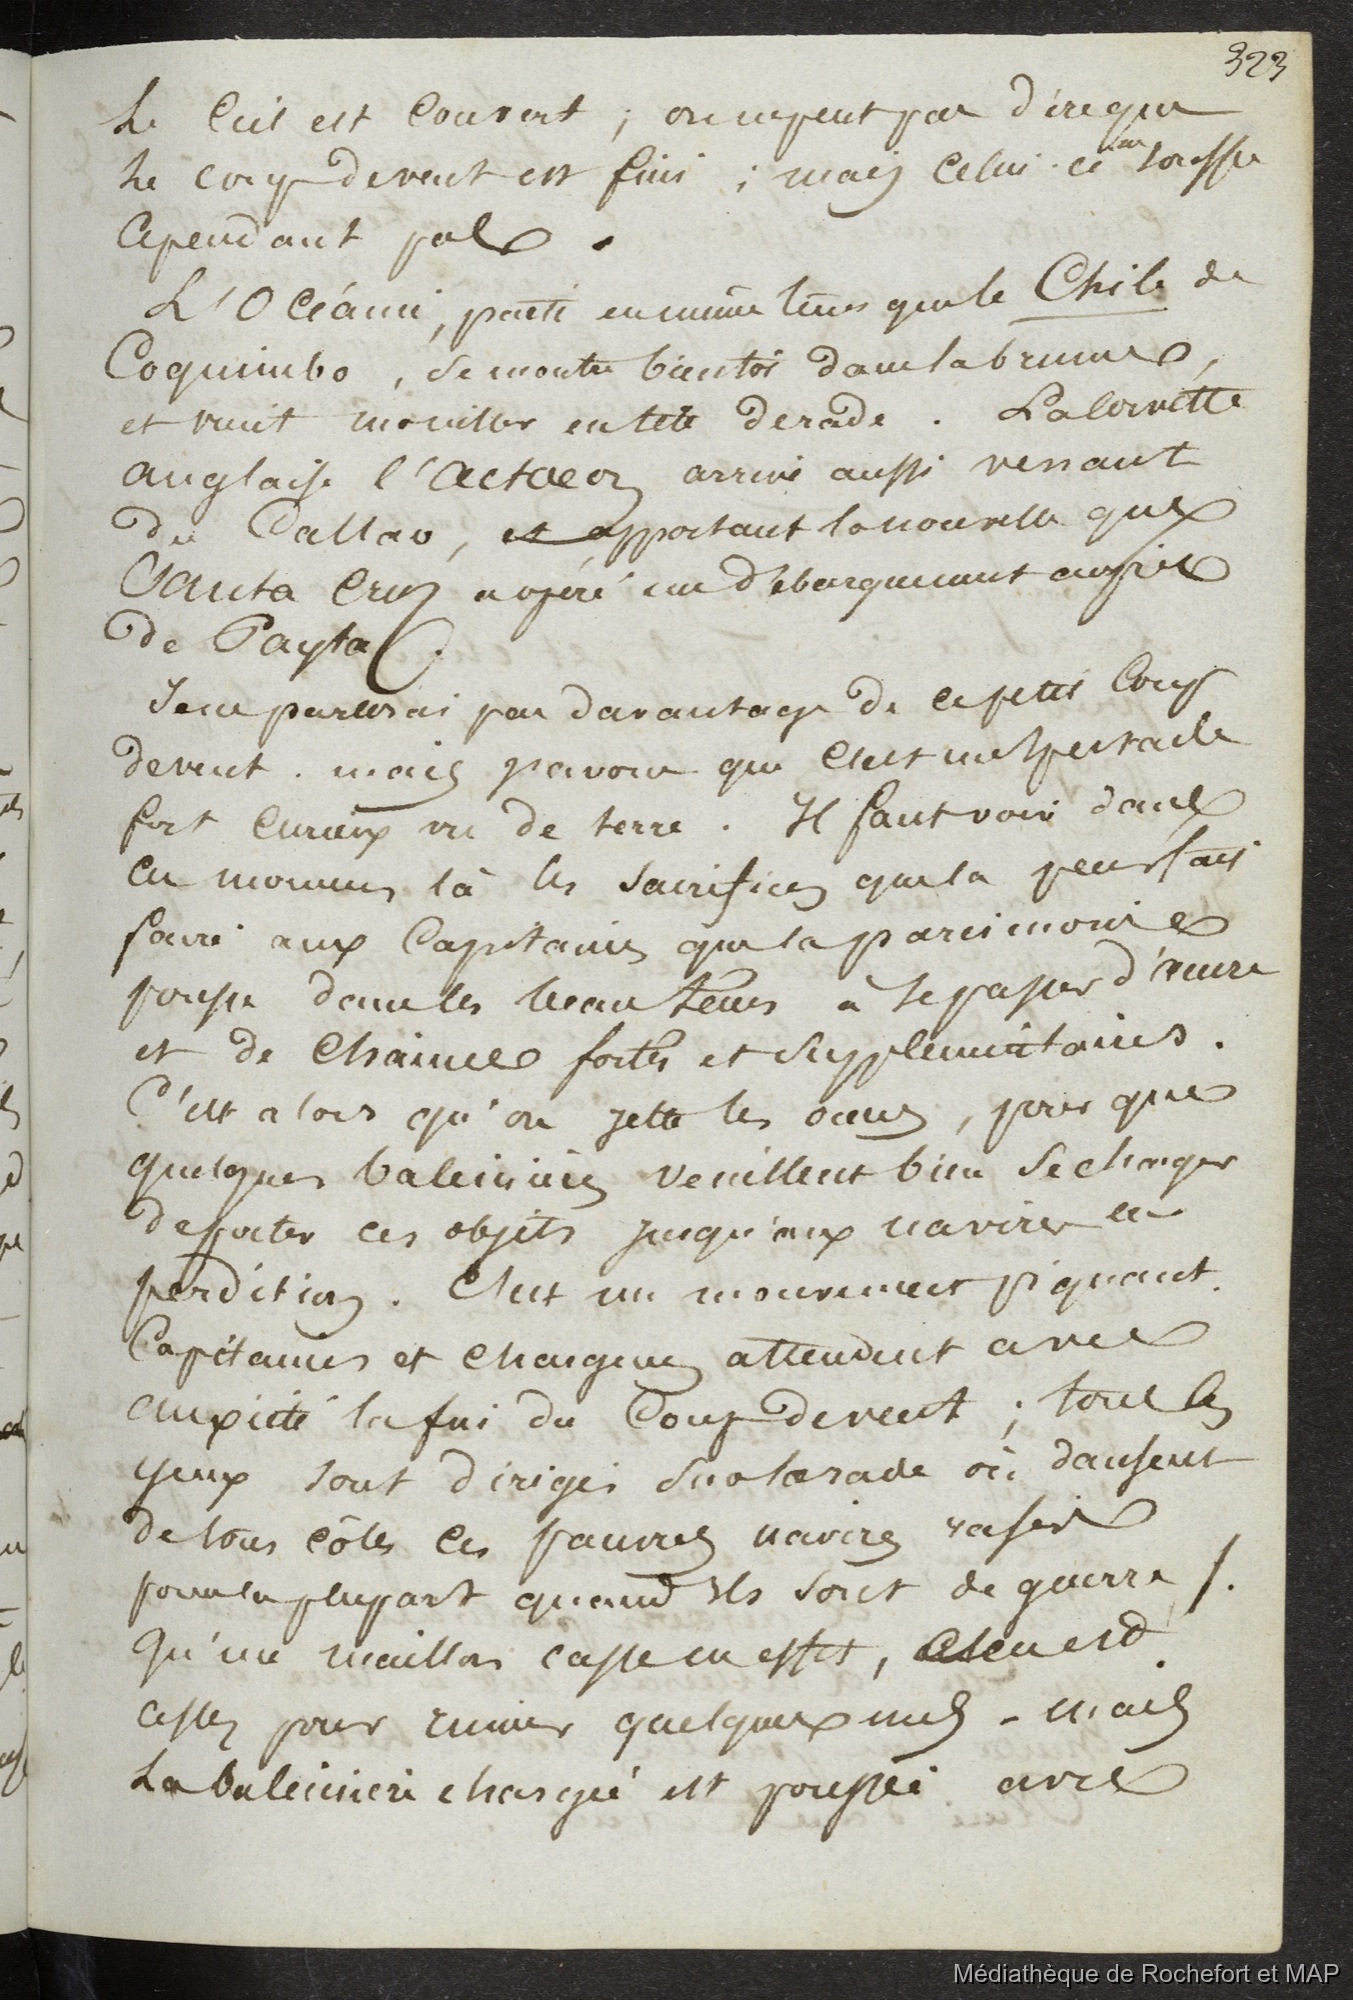 323
Le Ciel est Couvert ; on ne peut pas dire que
le coup de vent est fini ; mais celui-ci ne souffle
cependant pas.
L'Océanie, partie en même tems que le Chili de
Coquimbo, se montre bientôt dans la brume,
et vient mouiller en tête de rade. La Corvette
anglaise l'Actaeon arrive aussi venant
du Callao, et apportant la nouvelle que
Santa Cruz a opéré un débarquement auprès
de Payta.
Je ne parlerai pas davantage de ce petit Coup
de vent. mais j'avoue que c'est un spectacle
fort curieux vu de terre. Il faut voir dans
ces momens là les sacrifices que la peur fait
faire aux Capitaines que la parcimonie
pousse dans les beau tems à se passer d'ancre
et de chaînes fortes et supplémentaires.
C'est alors qu'on jette les onces, pour que
quelques baleinières veuillent bien se charger
de porter ces objets jusqu'aux navires en
perdition. C'est un mouvement piquant.
Capitaines et chargeurs attendent avec
anxiété la fin du Coup de vent ; tous les
yeux sont dirigés sur la rade où dansent
de tous côtés ces pauvres navires rasés
pour la plupart quand ils sont de guerre /.
Qu'un maillon casse en effet, c'en est
assez pour ruiner quelques uns - mais
La baleinière chargée est poussée avec
Médiathèque de Rochefort et MAP